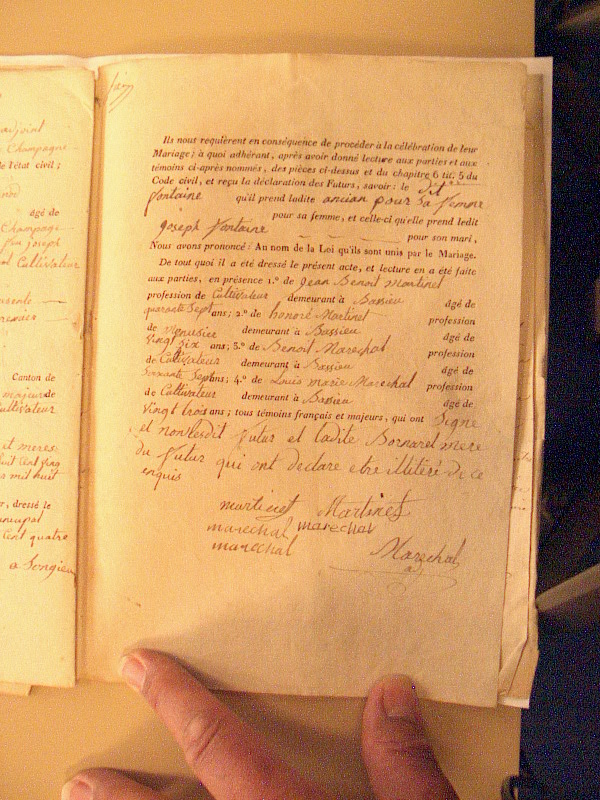 adjoint
Champagne
de l'état civil;
âgé de
Champagne
feu joseph
Cultivateur
Canton de
majeur de
Cultivateur
et meres
huit Cent ving
mil huit
r, dressé le
municipal
Cent quatre
a Songieu
Ils nous requièrent en conséquence de procéder à la célébration de leur
Mariage; à quoi adhérant, après avoir donné lecture aux parties et aux
témoins ci-après nommés, des pièces ci-dessus et du chapitre 6 tit. 5 du
Code civil, et reçu la déclaration des Futurs, savoir: le dit
fontaine qu'il prend ladite ancian pour sa femme
pour sa femme, et celle-ci qu'elle prend ledit
joseph fontaine pour son mari,
Nous avons prononcé: Au nom de la Loi qu'ils sont unis par le Mariage.
De tout quoi il a été dressé le présent acte, et lecture en a été faite
aux parties, en présence 1.º de jean Benoit Martinet
profession de Cultivateur demeurant à Bassieu âgé de
quarante Sept ans; 2.º de honoré Martinet profession
de Menusier demeurant à Bassieu âgé de
vingt six ans; 3.º de Benoit Marechal profession
de Cultivateur demeurant à Bassieu âgé de
Soixante Sept ans; 4.º de Louis marie Marechal profession
de Cultivateur demeurant à Bassieu âgé de
vingt trois ans; tous témoins français et majeurs, qui ont Signé
et non ledit futur et ladite Bornaret mere
du futur qui ont declare etre illitéré de ce
enquis
martinet Martinet
marechal marechal
marechal Marechal